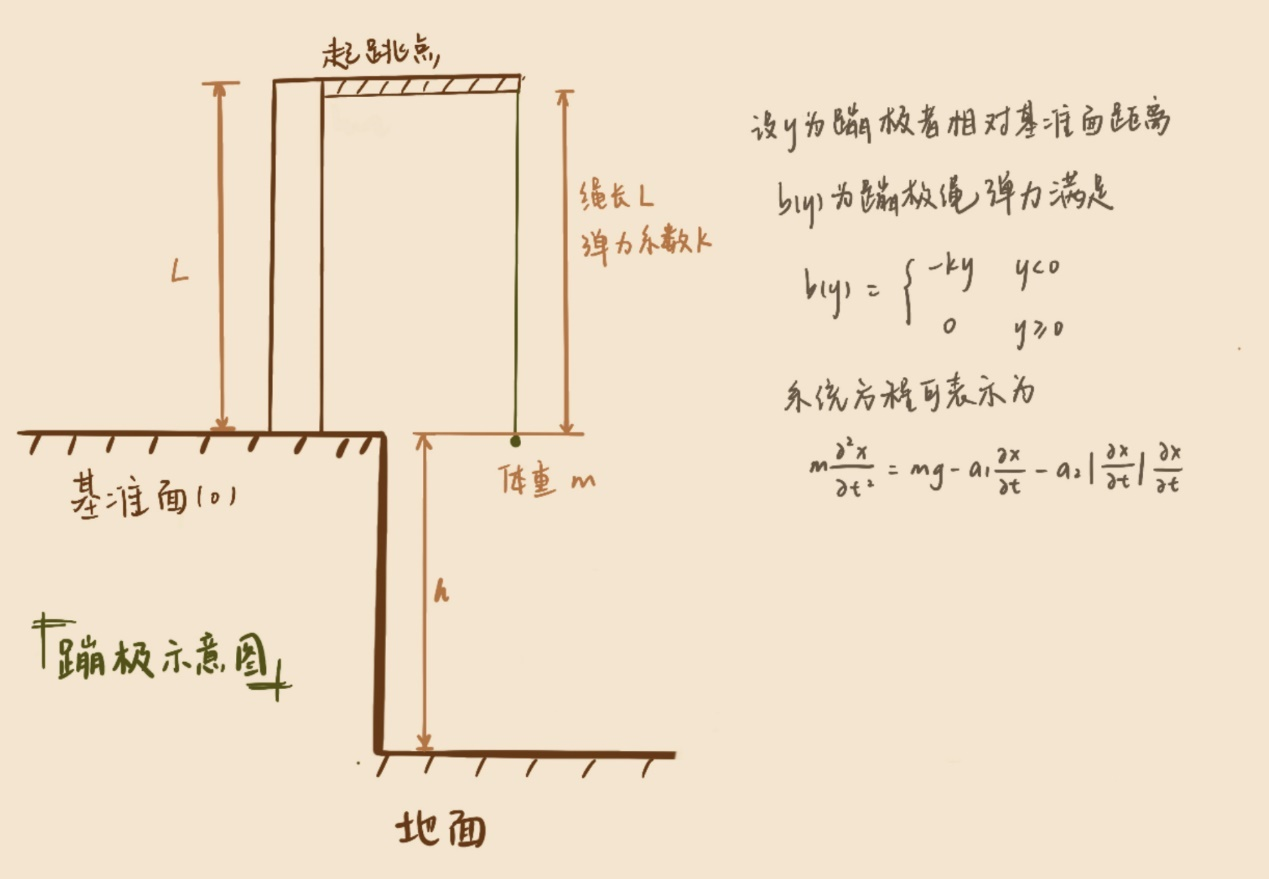 起跳点
L
绳长L
弹力系数k
基准面(0)
体重 m
h
「蹦极示意图」
地面
设y为蹦极者相对基准面距离
b(y)为蹦极绳弹力满足
b(y) = { -ky y<0
0 y≥0
系统方程可表示为
m ∂²x/∂t² = mg - a₁ ∂x/∂t - a₂ |∂x/∂t| ∂x/∂t